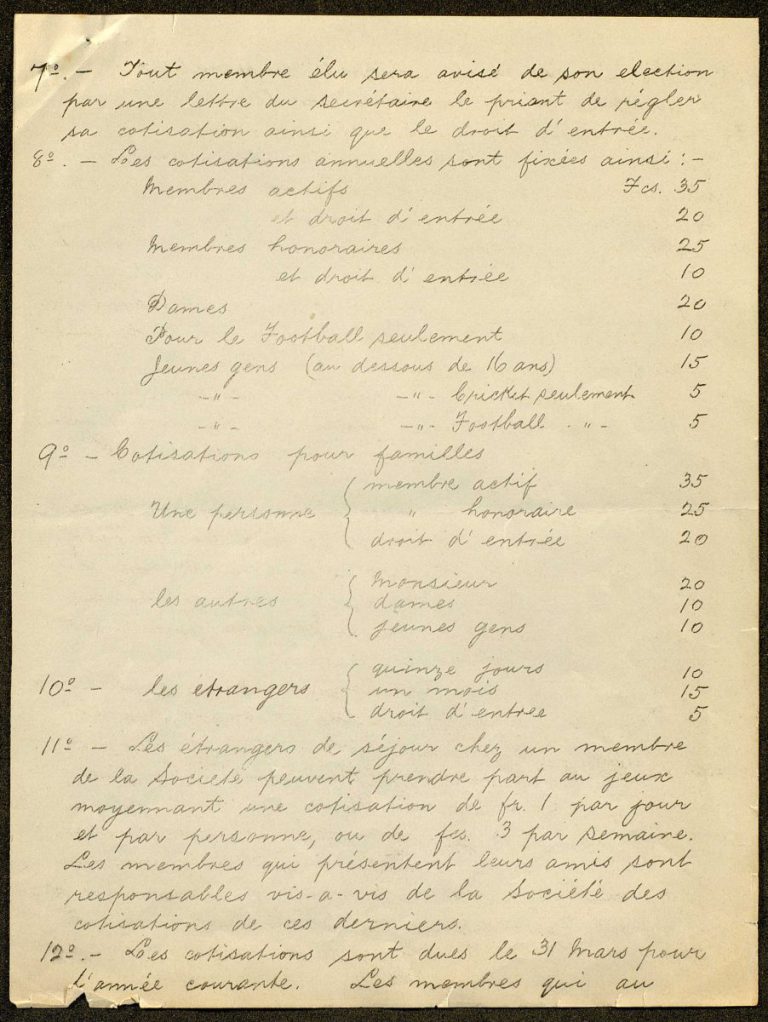 7º. – Tout membre élu sera avisé de son election
par une lettre du secrétaire le priant de régler
sa cotisation ainsi que le droit d'entrée.
8º. – Les cotisations annuelles sont fixées ainsi :–
Membres actifs Fcs. 35
et droit d'entrée 20
Membres honoraires 25
et droit d'entrée 10
Dames 20
Pour le Football seulement 10
Jeunes gens (au dessous de 16 ans) 15
–"– –"– Cricket seulement 5
–"– –"– Football . "– 5
9º – Cotisations pour familles
Une personne { membre actif 35
" honoraire 25
droit d'entrée 20
les autres { Monsieur 20
dames 10
jeunes gens 10
10º – les etrangers { quinze jours 10
un mois 15
droit d'entree 5
11º – Les étrangers de séjour chez un membre
de la Société peuvent prendre part au jeux
moyennant une cotisation de fr. 1 par jour
et par personne, ou de fcs. 3 par semaine.
Les membres qui présentent leurs amis sont
responsables vis-a-vis de la Société des
cotisations de ces derniers.
12º. – Les cotisations sont dues le 31 Mars pour
l'année courante. Les membres qui au